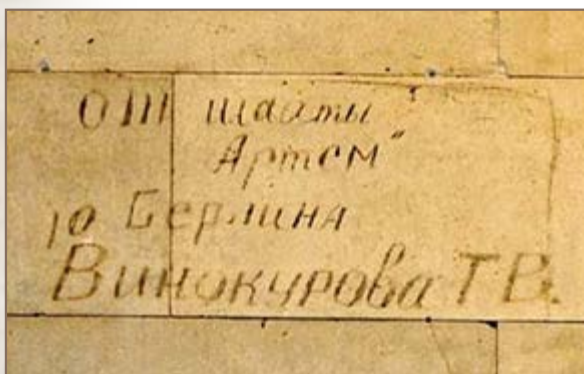 от шахты
Артем"
до Берлина
Винокурова Т В.